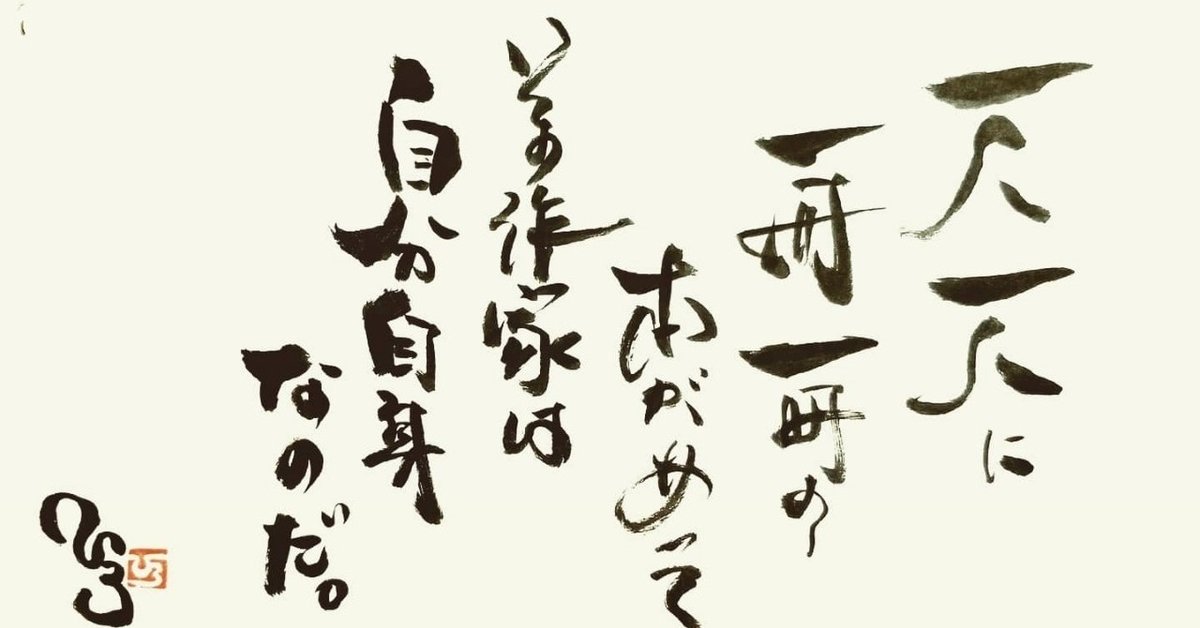 一人一人に
一冊一冊の
本があって
その作家は
自分自身
なのだ。